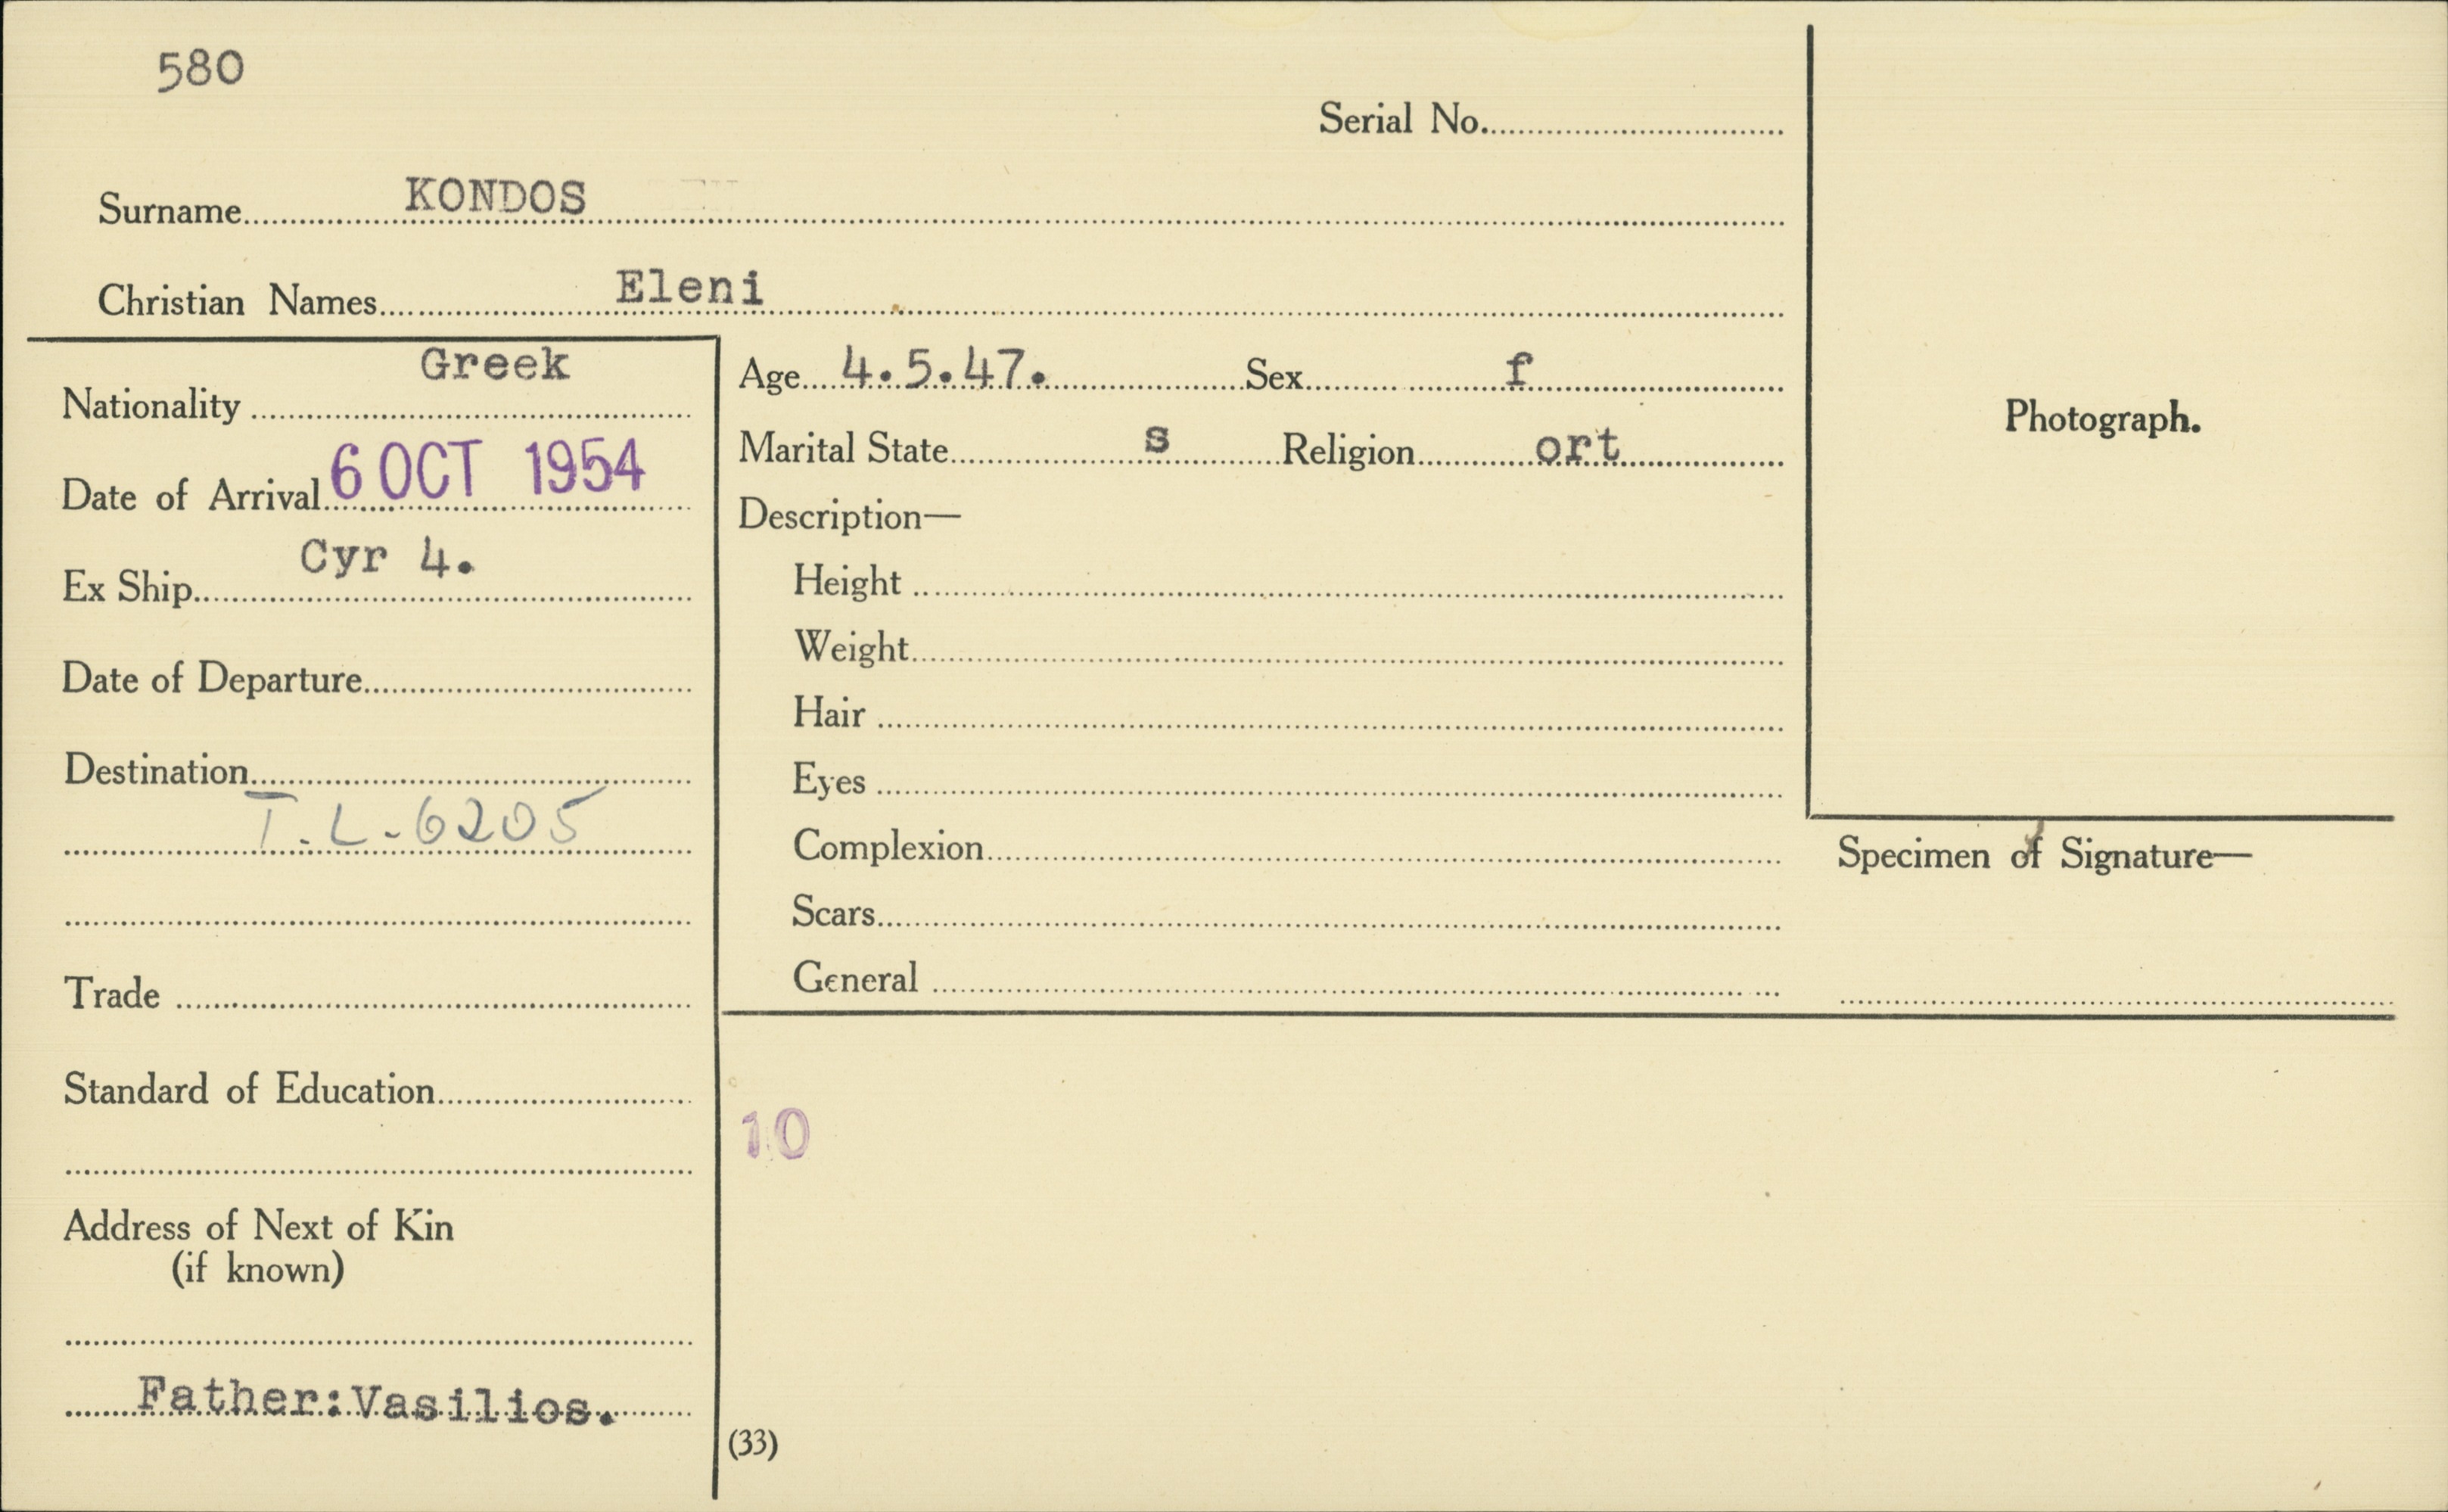 580
Serial No.
Surname KONDOS
Christian Names Eleni
Nationality Greek
Date of Arrival 6 OCT 1954
Ex Ship Cyr 4.
Date of Departure
Destination
T.L-6205
Trade
Standard of Education
Address of Next of Kin
(if known)
Father:Vasilios.
Age 4.5.47. Sex f
Marital State s Religion ort
Description—
Height
Weight
Hair
Eyes
Complexion
Scars
General
Photograph.
Specimen of Signature—
10
(33)